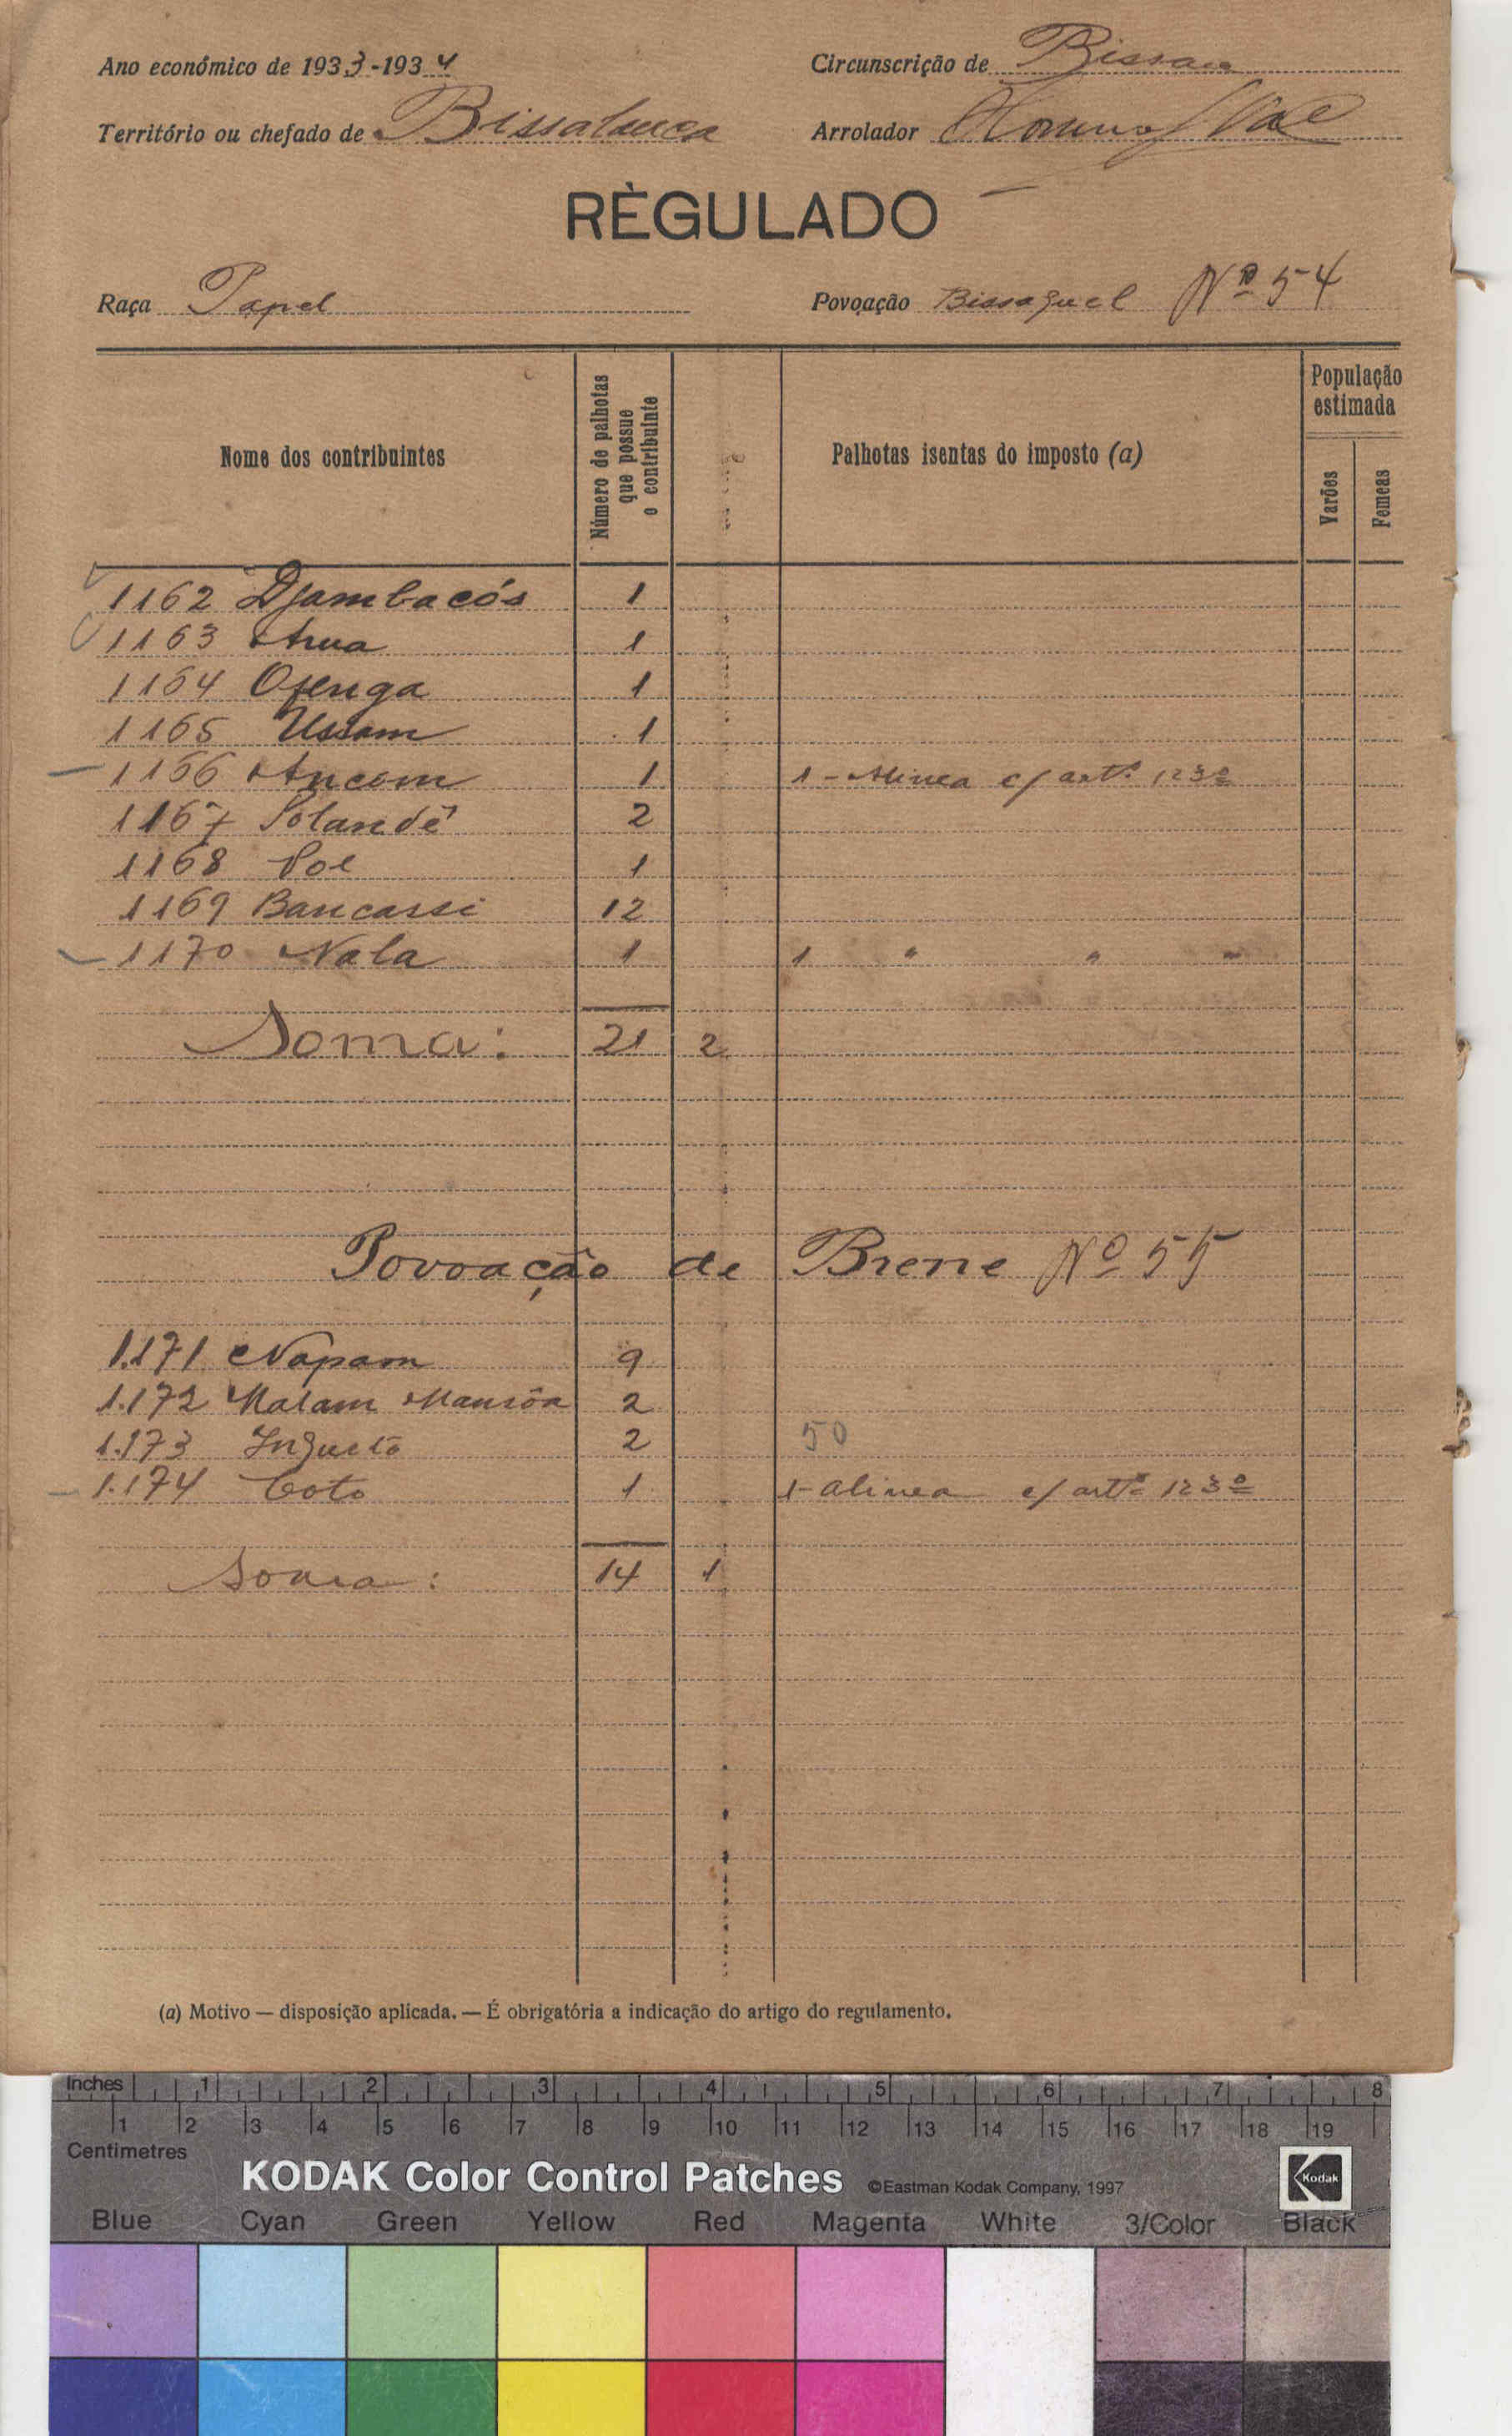 Ano económico de 1933-1934
Circunscrição de Bissau
Território ou chefado de Bissalanca
Arrolador
RÈGULADO
Raça Papel
Povoação Bissaquel Nº 54
Nome dos contribuintes
Número de palhotas que possue o contribuinte
Palhotas isentas do imposto (a)
População estimada
Varões
Femeas
1162 Djambacós 1
1163 Anua 1
1164 Ofenga 1
1165 Ussam 1
1166 Ancom 1 1 - Alinea c/ artº 123º
1167 Solandê 2
1168 1
1169 Bancassi 12
1170 Nala 1 1 " " "
Soma: 21 2
Povoação de Brene Nº 55
1.171 Napam 9
1.172 Malam Mansôa 2
1.173 2 50
1.174 Coto 1 1- alinea c/ artº 123º
Soma: 14 1
(a) Motivo — disposição aplicada. — É obrigatória a indicação do artigo do regulamento.
Inches 1 2 3 4 5 6 7 8
1 2 3 4 5 6 7 8 9 10 11 12 13 14 15 16 17 18 19
Centimetres
KODAK Color Control Patches ©Eastman Kodak Company, 1997 Kodak
Blue Cyan Green Yellow Red Magenta White 3/Color Black